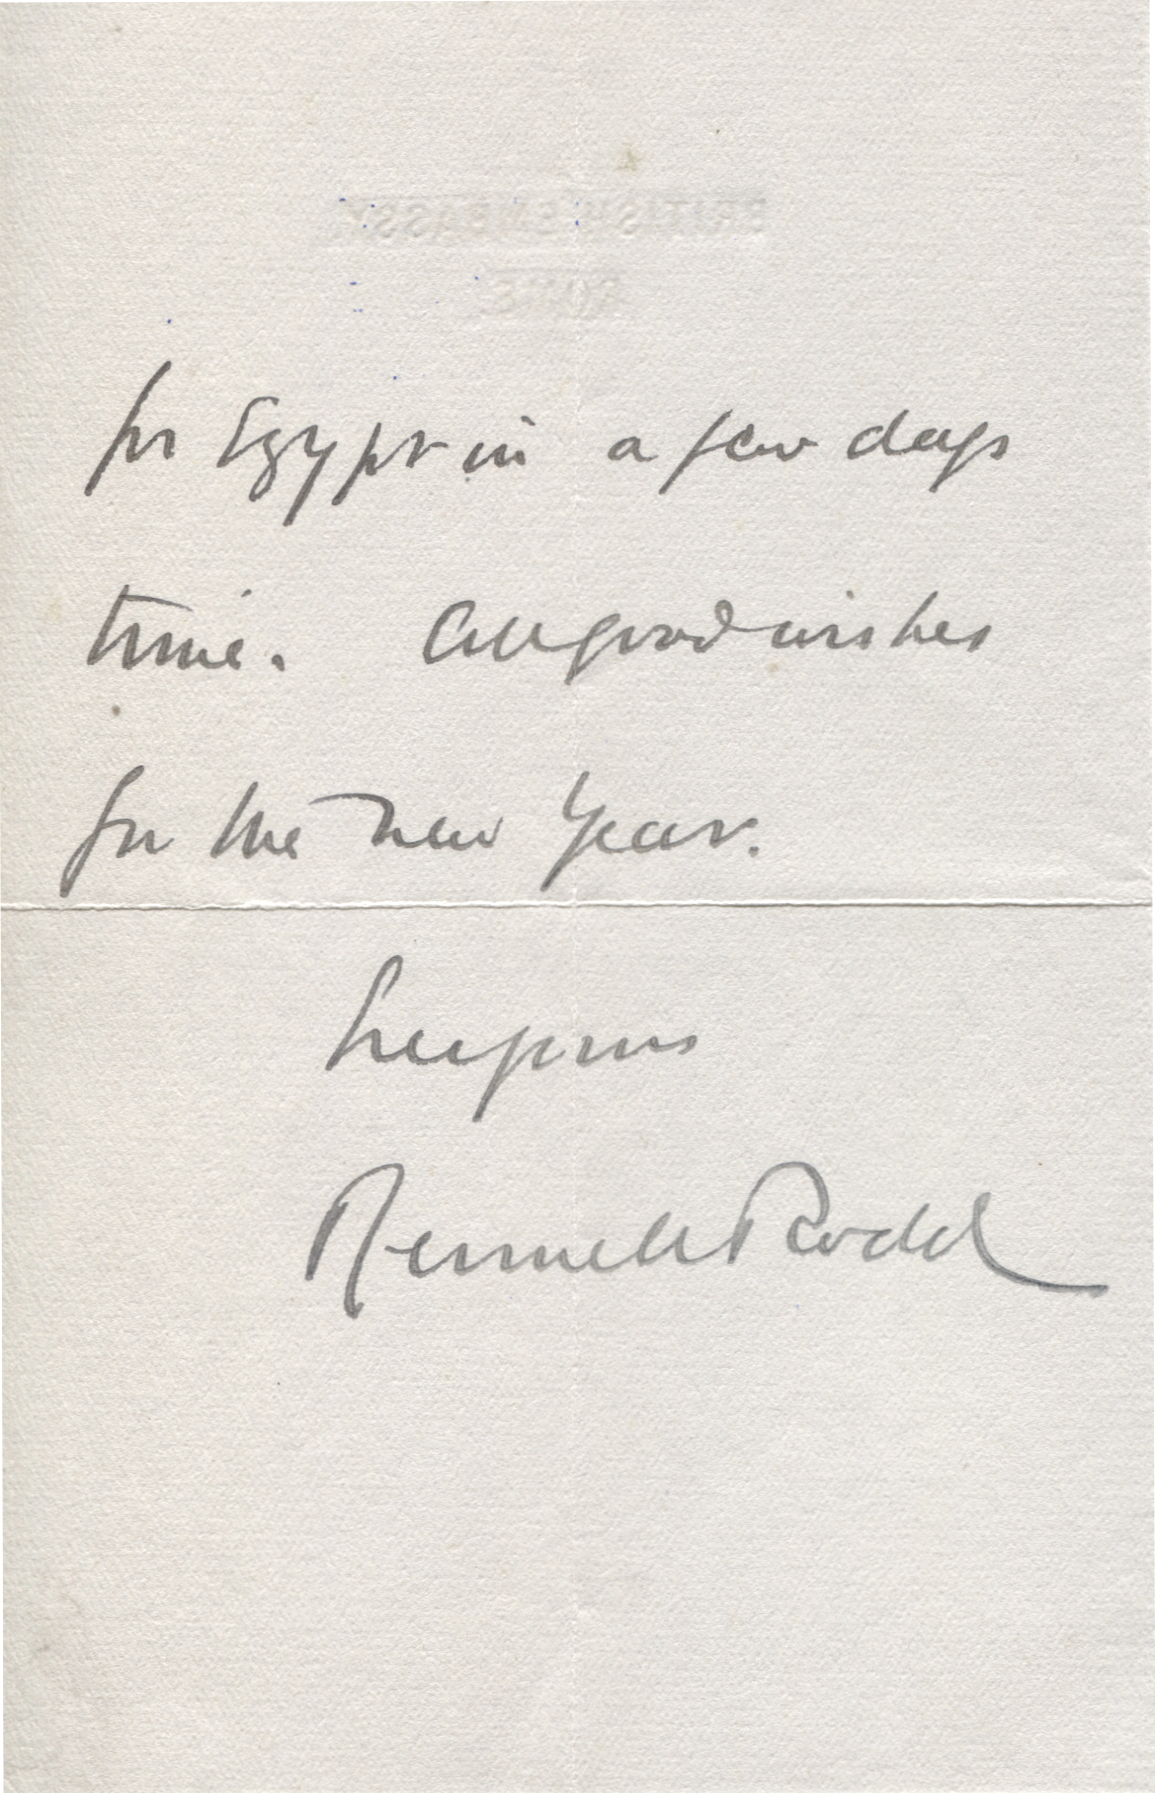 BRITISH EMBASSY
ROME
for Egypt in a few days
time. All good wishes
for the new Year.
Rennell Rodd